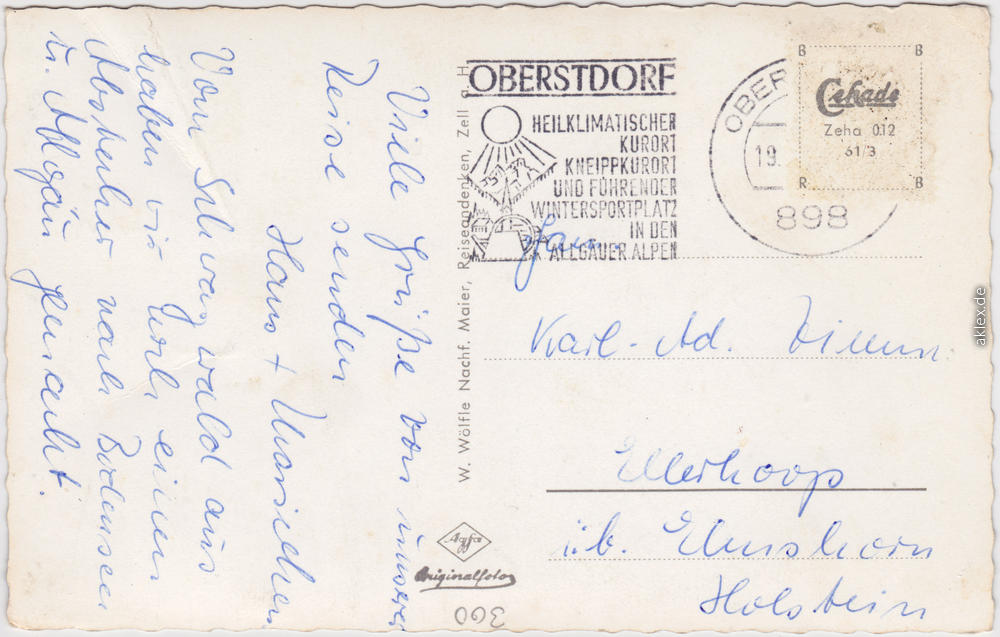 Viele Grüße von unserer
Reise senden
Hans + Mariechen
Vom Schwarzwald aus
haben wir noch einen
Abstecher nach Bodensee
u. Allgäu gemacht.
W. Wölfle Nachf. Maier, Reiseandenken, Zell a. H
OBERSTDORF
HEILKLIMATISCHER
KURORT
KNEIPPKURORT
UND FÜHRENDER
WINTERSPORTPLATZ
IN DEN
ALLGÄUER ALPEN
OBER
19.
898
B B
Cehade
Zeha 012
61/3
R B
Fam.
Karl-Ad.
Ellerhoop
üb. Elmshorn
Holstein
Agfa
Originalfoto
360
aklex.de